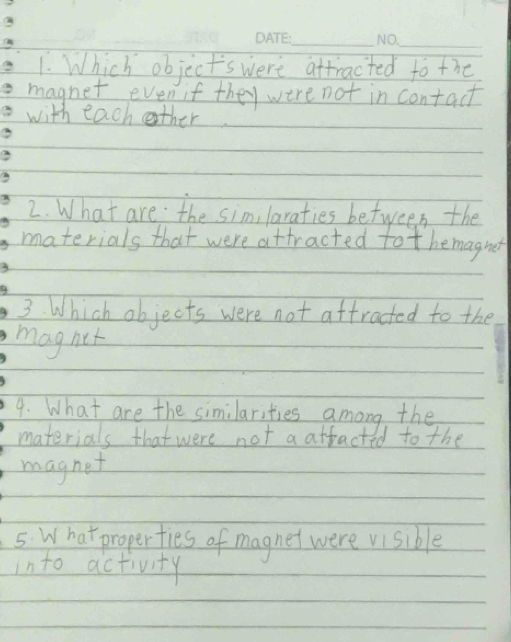 DATE: NO.
1. Which objects were attracted to the
magnet even if they were not in contact
with each other
2. What are the similaraties between the
materials that were attracted to the magnet
3. Which objects were not attracted to the
magnet
4. What are the similarities among the
materials that were not a attacted to the
magnet
5. What properties of magnet were visible
into activity